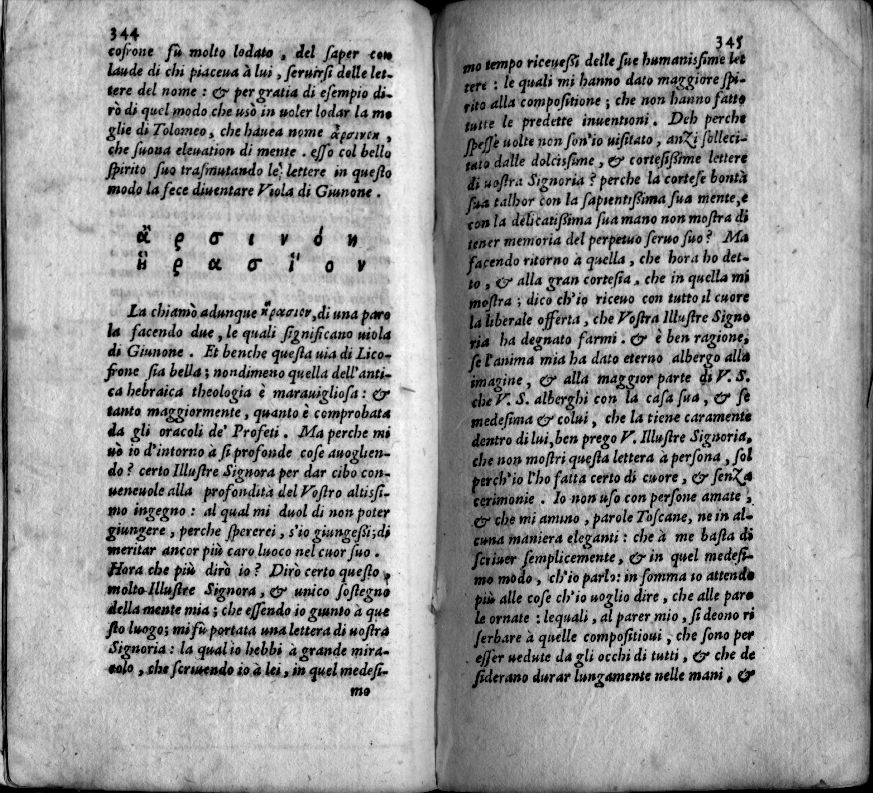 344
cofrone fù molto lodato, del saper con
laude di chi piaceua à lui, seruirsi delle let-
tere del nome: & per gratia di esempio di-
rò di quel modo che usò in uoler lodar la mo
glie di Tolomeo, che hauea nome ἀρσινοη,
che suona eleuation di mente. esso col bello
spirito suo trasmutando le lettere in questo
modo la fece diuentare Viola di Giunone.
ἄ ρ σ ι ν ό η
ἥ ρ α σ ἴ ο ν
La chiamò adunque ἥρασιον, di una paro
la facendo due, le quali significano uiola
di Giunone. Et benche questa uia di Lico-
frone sia bella; nondimeno quella dell'anti-
ca hebraica theologia è marauigliosa: &
tanto maggiormente, quanto è comprobata
da gli oracoli de' Profeti. Ma perche mi
uò io d'intorno à sì profonde cose auoglien-
do? certo Illustre Signora per dar cibo con-
ueneuole alla profondità del Vostro altissi-
mo ingegno: al qual mi duol di non poter
giungere, perche spererei, s'io giungessi; di
meritar ancor più caro luoco nel cuor suo.
Hora che più dirò io? Dirò certo questo,
molto Illustre Signora, & unico sostegno
della mente mia; che essendo io giunto à que
sto luogo; mi fù portata una lettera di uostra
Signoria: la qual io hebbi à grande mira-
colo, che scriuendo io à lei, in quel medesi-
mo
345
mo tempo riceuessi delle sue humanissime let
tere: le quali mi hanno dato maggiore spi-
rito alla compositione; che non hanno fatto
tutte le predette inuentioni. Deh perche
spesse uolte non son'io uisitato, anzi solleci-
tato dalle dolcissime, & cortesissime lettere
di uostra Signoria? perche la cortese bontà
sua talhor con la sapientissima sua mente, e
con la delicatissima sua mano non mostra di
tener memoria del perpetuo seruo suo? Ma
facendo ritorno à quella, che hora ho det-
to, & alla gran cortesia, che in quella mi
mostra; dico ch'io riceuo con tutto il cuore
la liberale offerta, che Vostra Illustre Signo
ria ha degnato farmi. & è ben ragione,
se l'anima mia ha dato eterno albergo alla
imagine, & alla maggior parte di V. S.
che V. S. alberghi con la casa sua, & se
medesima & colui, che la tiene caramente
dentro di lui. ben prego V. Illustre Signoria,
che non mostri questa lettera à persona, sol
perch'io l'ho fatta certo di cuore, & senza
cerimonie. Io non uso con persone amate,
& che mi amino, parole Toscane, ne in al-
cuna maniera eleganti: che à me basta di
scriuer semplicemente, & in quel medesi-
mo modo, ch'io parlo: in somma io attendo
più alle cose ch'io uoglio dire, che alle paro
le ornate: lequali, al parer mio, si deono ri
serbare à quelle compositioui, che sono per
esser uedute da gli occhi di tutti, & che de
siderano durar lungamente nelle mani, &